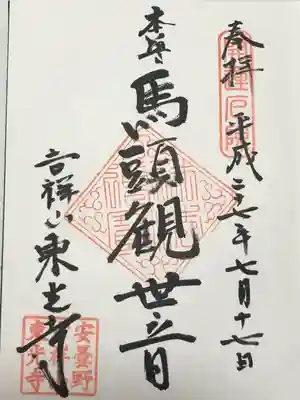 奉拝 平成二七年七月十七日
本尊
馬頭観世音
吉祥山東光寺
安曇野
吉祥山
東光寺